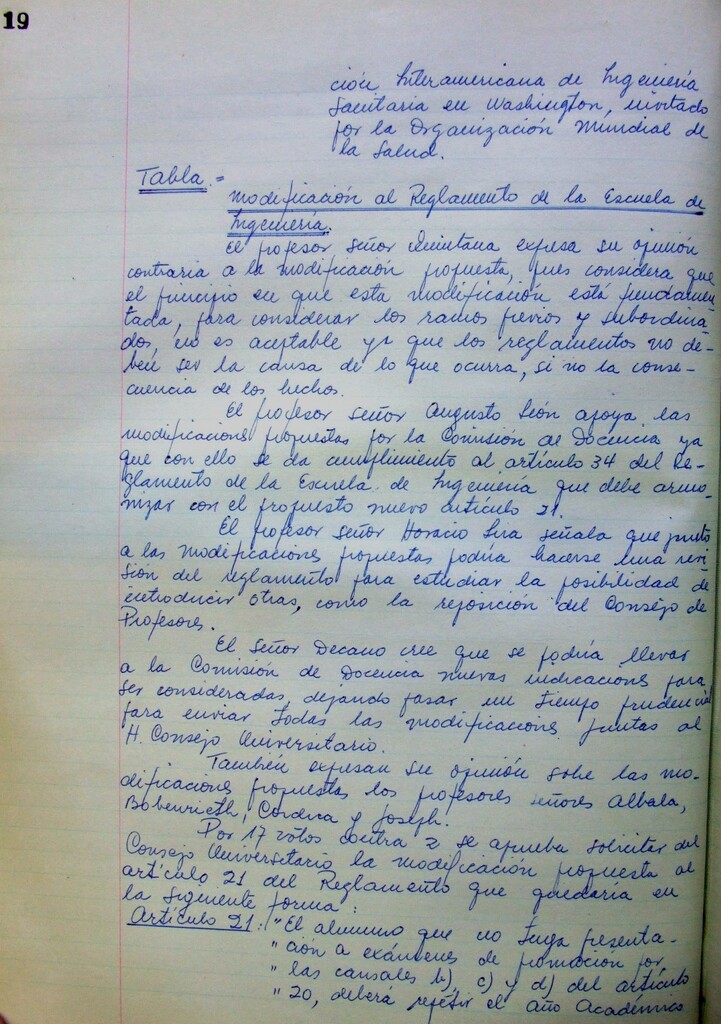 19
ción Interamericana de Ingeniería
Sanitaria en Washington, invitado
por la Organización Mundial de
la Salud.
Tabla.=
Modificación al Reglamento de la Escuela de
Ingeniería.
El profesor señor Quintana expresa su opinión
contraria a la modificación propuesta, pues considera que
el principio en que esta modificación está fundamen-
tada, para considerar los ramos previos y subordina-
dos, no es aceptable ya que los reglamentos no de-
ben ser la causa de lo que ocurra, si no la conse-
cuencia de los hechos.
El profesor señor Augusto León apoya las
modificaciones propuestas por la Comisión de Docencia ya
que con ello se da cumplimiento al artículo 34 del Re-
glamento de la Escuela de Ingeniería que debe armo-
nizar con el propuesto nuevo artículo 21.
El profesor señor Horacio Lira señala que junto
a las modificaciones propuestas podría hacerse una revi-
sión del reglamento para estudiar la posibilidad de
introducir otras, como la reposición del Consejo de
Profesores.
El Señor Decano cree que se podría llevar
a la Comisión de Docencia nuevas indicaciones para
ser consideradas, dejando pasar un tiempo prudencial
para enviar todas las modificaciones juntas al
H. Consejo Universitario.
También expresan su opinión sobre las mo-
dificaciones propuestas los profesores señores Albala,
Bobenrieth, Cordova y Joseph.
Por 17 votos contra 2 se aprueba solicitar del
Consejo Universitario la modificación propuesta al
artículo 21 del Reglamento que quedaría en
la siguiente forma:
Artículo 21: "El alumno que no tenga presenta-
" ción a exámenes de promoción por
" las causales b), c) y d) del artículo
" 20, deberá repetir el Año Académico